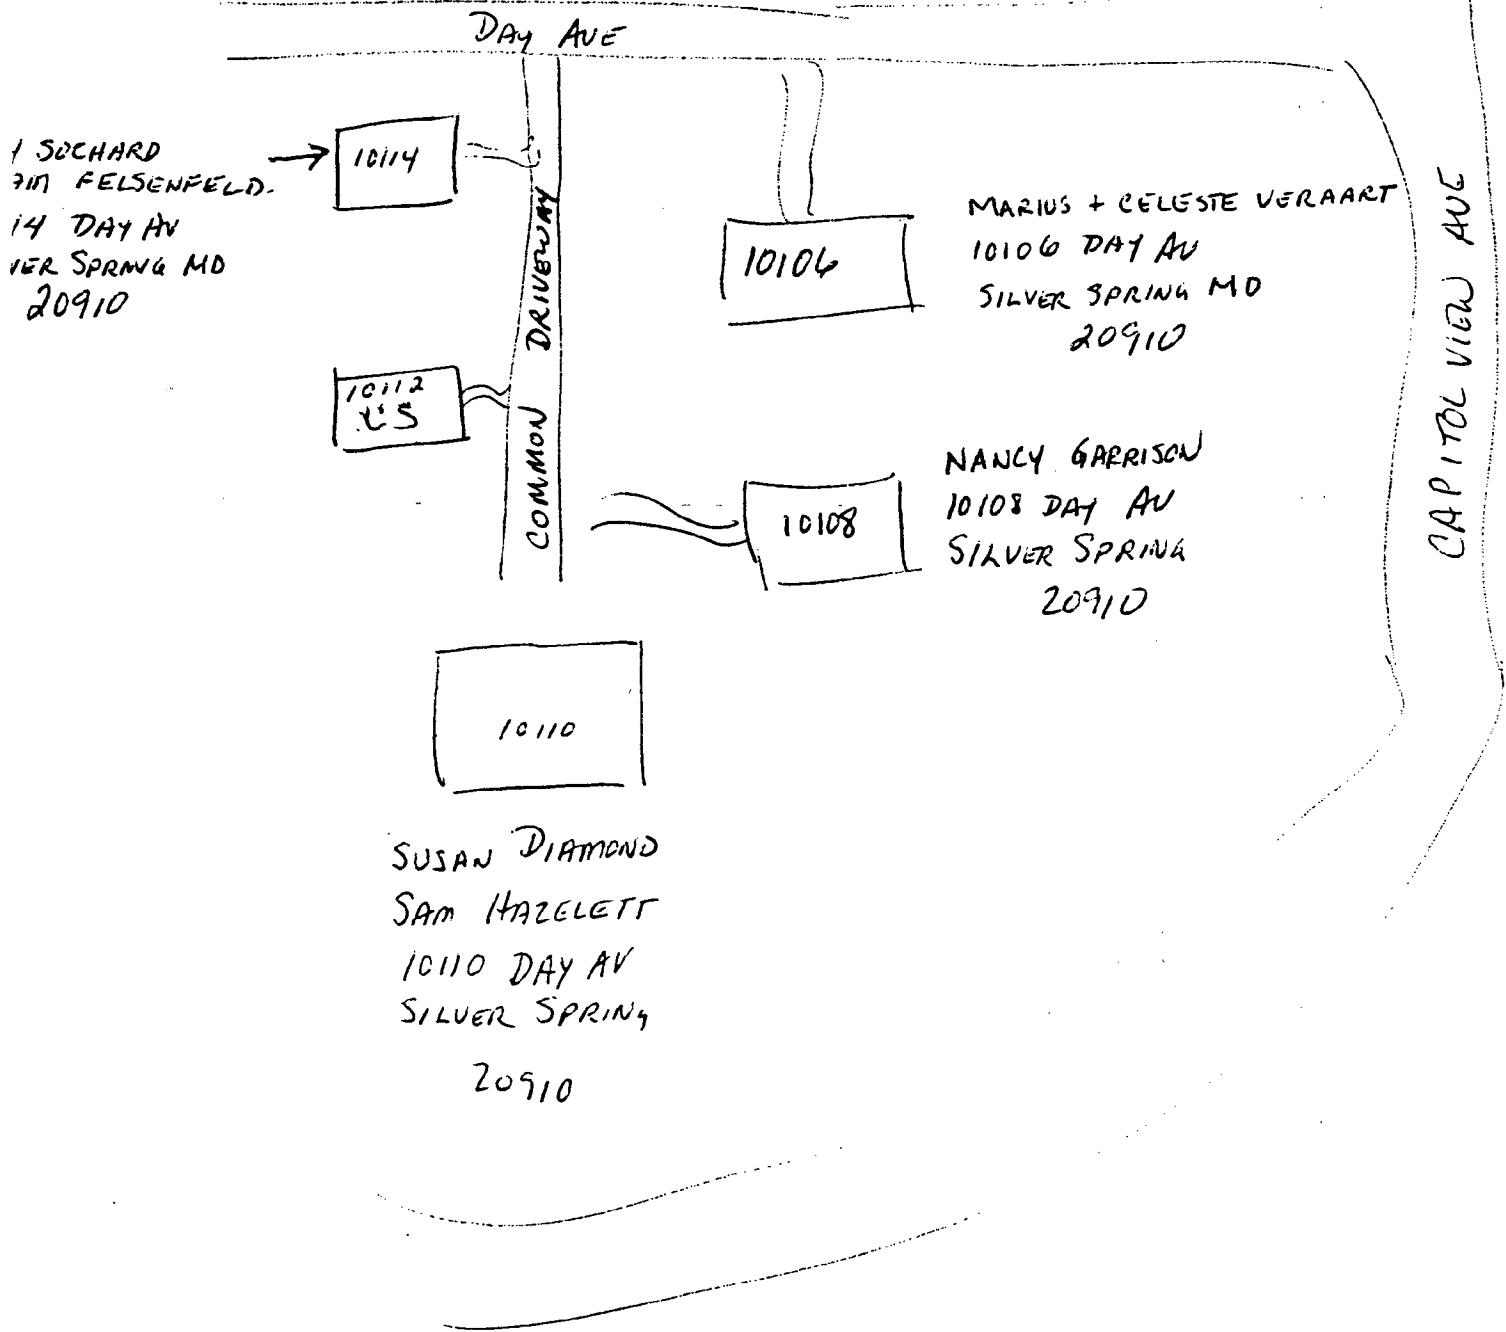 DAY AVE
SOCHARD
FELSENFELD.
14 DAY AV
VER SPRING MD
20910
10114
COMMON DRIVEWAY
10106
MARIUS + CELESTE VERAART
10106 DAY AV
SILVER SPRING MD
20910
CAPITOL VIEW AVE
10112
US
10108
NANCY GARRISON
10108 DAY AV
SILVER SPRING
20910
10110
SUSAN DIAMOND
SAM HAZELETT
10110 DAY AV
SILVER SPRING
20910